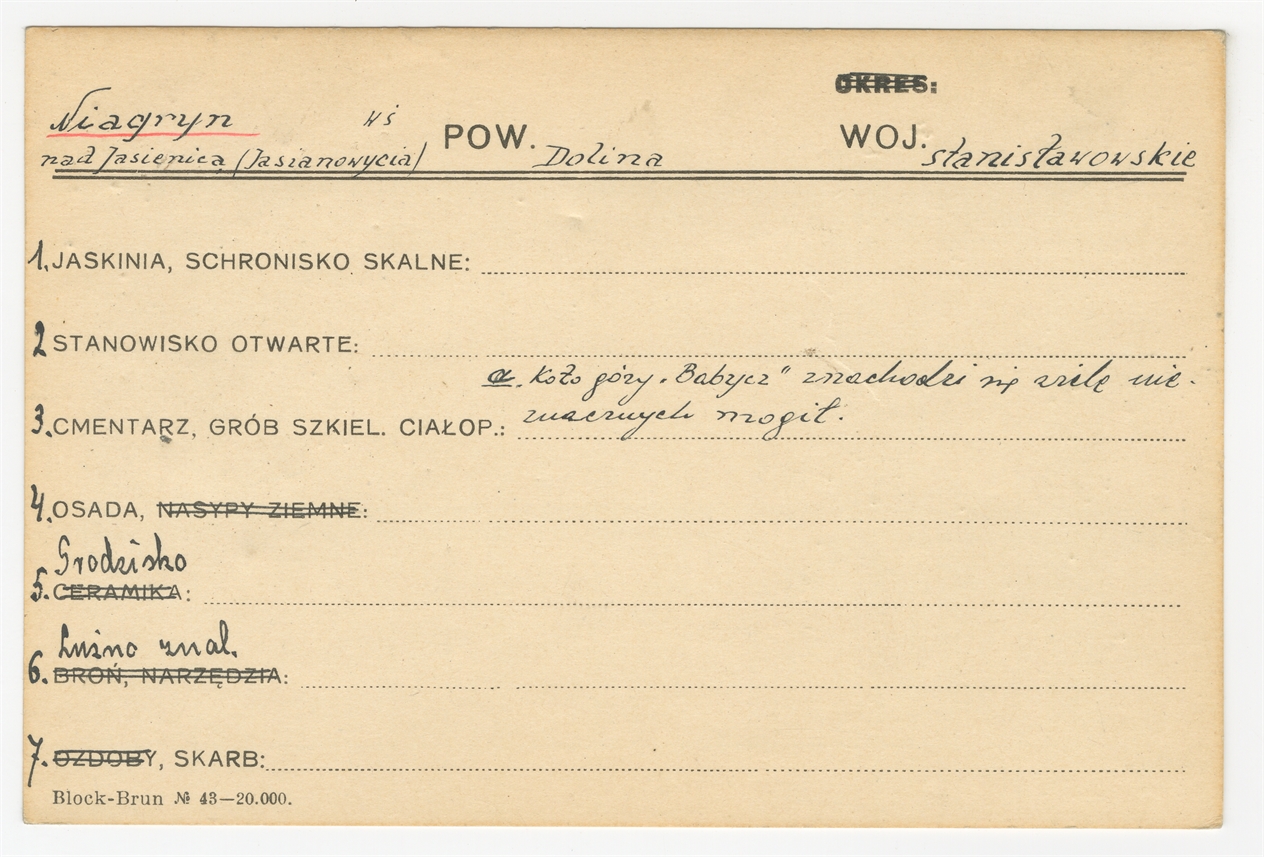 OKRES:
Niagryn wś
nad Jasienicą (Jasianowycia) POW. Dolina WOJ. stanisławowskie
1. JASKINIA, SCHRONISKO SKALNE:
2 STANOWISKO OTWARTE:
a. Koło góry „Babycz" znachodzi się wiele nie-
znacznych mogił.
3. CMENTARZ, GRÓB SZKIEL. CIAŁOP.:
4. OSADA, NASYPY ZIEMNE:
Grodzisko
5. CERAMIKA:
Luźno znal.
6. BROŃ, NARZĘDZIA:
7. OZDOBY, SKARB:
Block-Brun № 43—20.000.